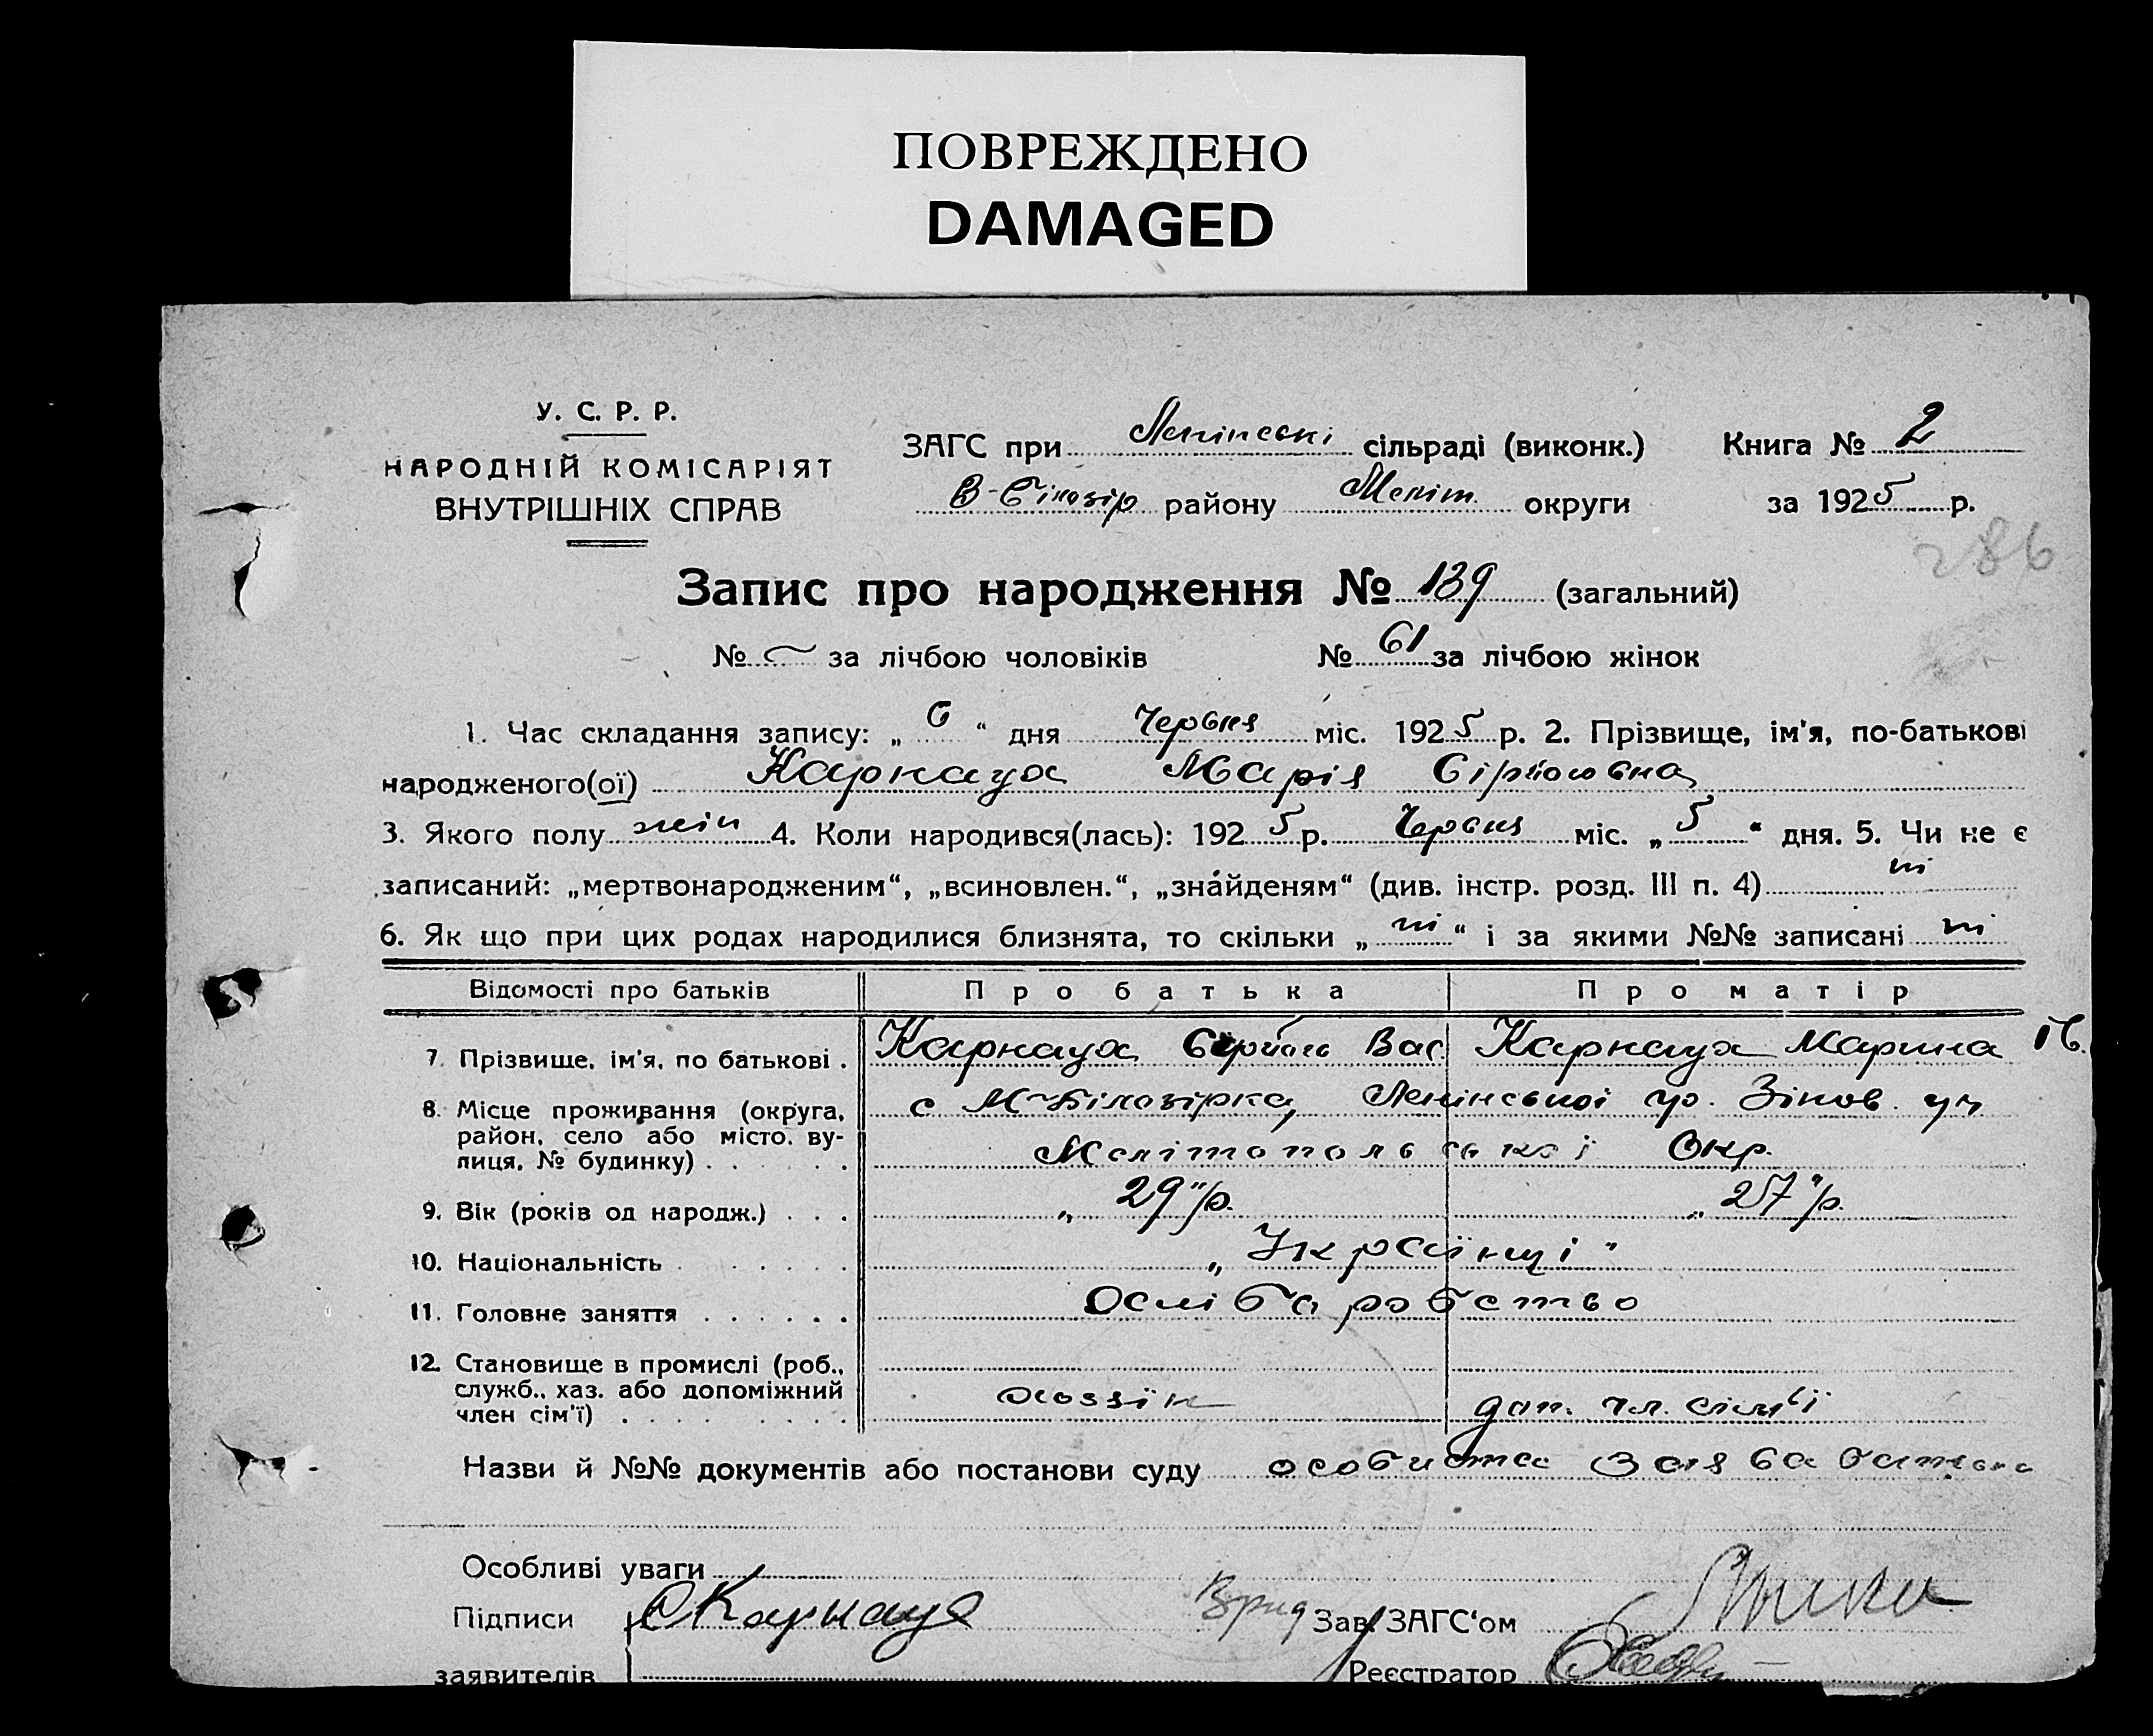 ПОВРЕЖДЕНО
DAMAGED
У. С. Р. Р.
НАРОДНІЙ КОМІСАРІЯТ
ВНУТРІШНІХ СПРАВ
ЗАГС при Ленінські сільраді (виконк.) Книга № 2
В-Білозір району Меліт. округи за 1925 р.
286
Запис про народження № 139 (загальний)
№ за лічбою чоловіків № 61 за лічбою жінок
1. Час складання запису: „ 6 “ дня Червня міс. 1925 р. 2. Прізвище, ім'я, по-батькові
народженого(ої) Карнаух Марія Сірйговна
3. Якого полу жін 4. Коли народився(лась): 1925 р. Червня міс. „ 5 “ дня. 5. Чи не є
записаний: „мертвонародженим“, „всиновлен.“, „знайденям“ (див. інстр. розд. III п. 4) ні
6. Як що при цих родах народилися близнята, то скільки „ ні “ і за якими №№ записані ні
Відомості про батьків Про батька Про матір
7. Прізвище, ім'я, по батькові . Карнаух Вас. Карнаух Марина Ів.
8. Місце проживання (округа, с М-Білозірка, Ленінської
район, село або місто, ву-
лиця, № будинку) . . . . . . Мелітопольської Окр.
9. Вік (років од народж.) . . . „ 29 " р. „ 27 " р.
10. Національність . . . . . . „ Українці "
11. Головне заняття . . . . . .
12. Становище в промислі (роб.,
служб., хаз. або допоміжний
член сім'ї) . . . . . . . . хоззїн доп. чл. сімьї
Назви й №№ документів або постанови суду особиста заява батька
Особливі уваги
Підписи СКарнаух Врид Зав. ЗАГС'ом
заявителів Реєстратор